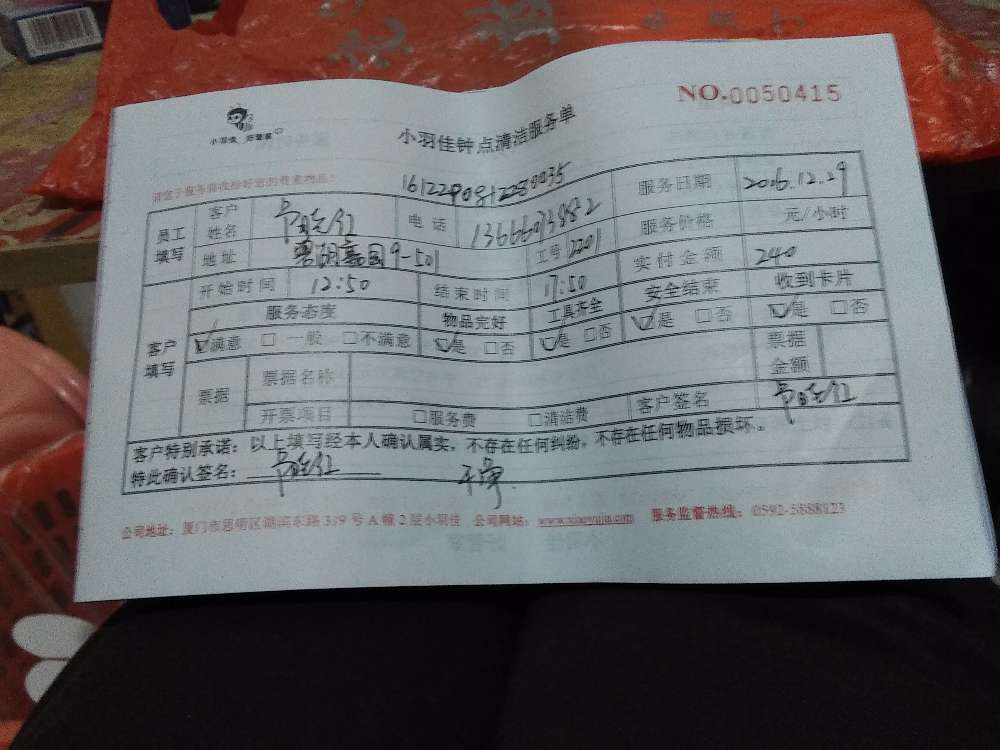 NO.0050415
小羽佳 好管家
小羽佳钟点清洁服务单
请您于服务前收拾好您的贵重物品!
1612290812280035
员工填写 客户姓名 电话 13666073882 服务日期 2016.12.29
地址 9-501 工号 2201 服务价格 元/小时
客户填写 开始时间 12:50 结束时间 17:50 实付金额 240
服务态度 物品完好 工具齐全 安全结束 收到卡片
☑满意 □一般 □不满意 ☑是 □否 ☑是 □否 ☑是 □否 ☑是 □否
票据 票据名称 票据金额
开票项目 □服务费 □清洁费 客户签名
客户特别承诺:以上填写经本人确认属实,不存在任何纠纷,不存在任何物品损坏。
特此确认签名: 干净
公司地址:厦门市思明区湖滨东路319号A幢2层小羽佳 公司网站:www.xiaoyujia.com 服务监督热线:0592-5888123